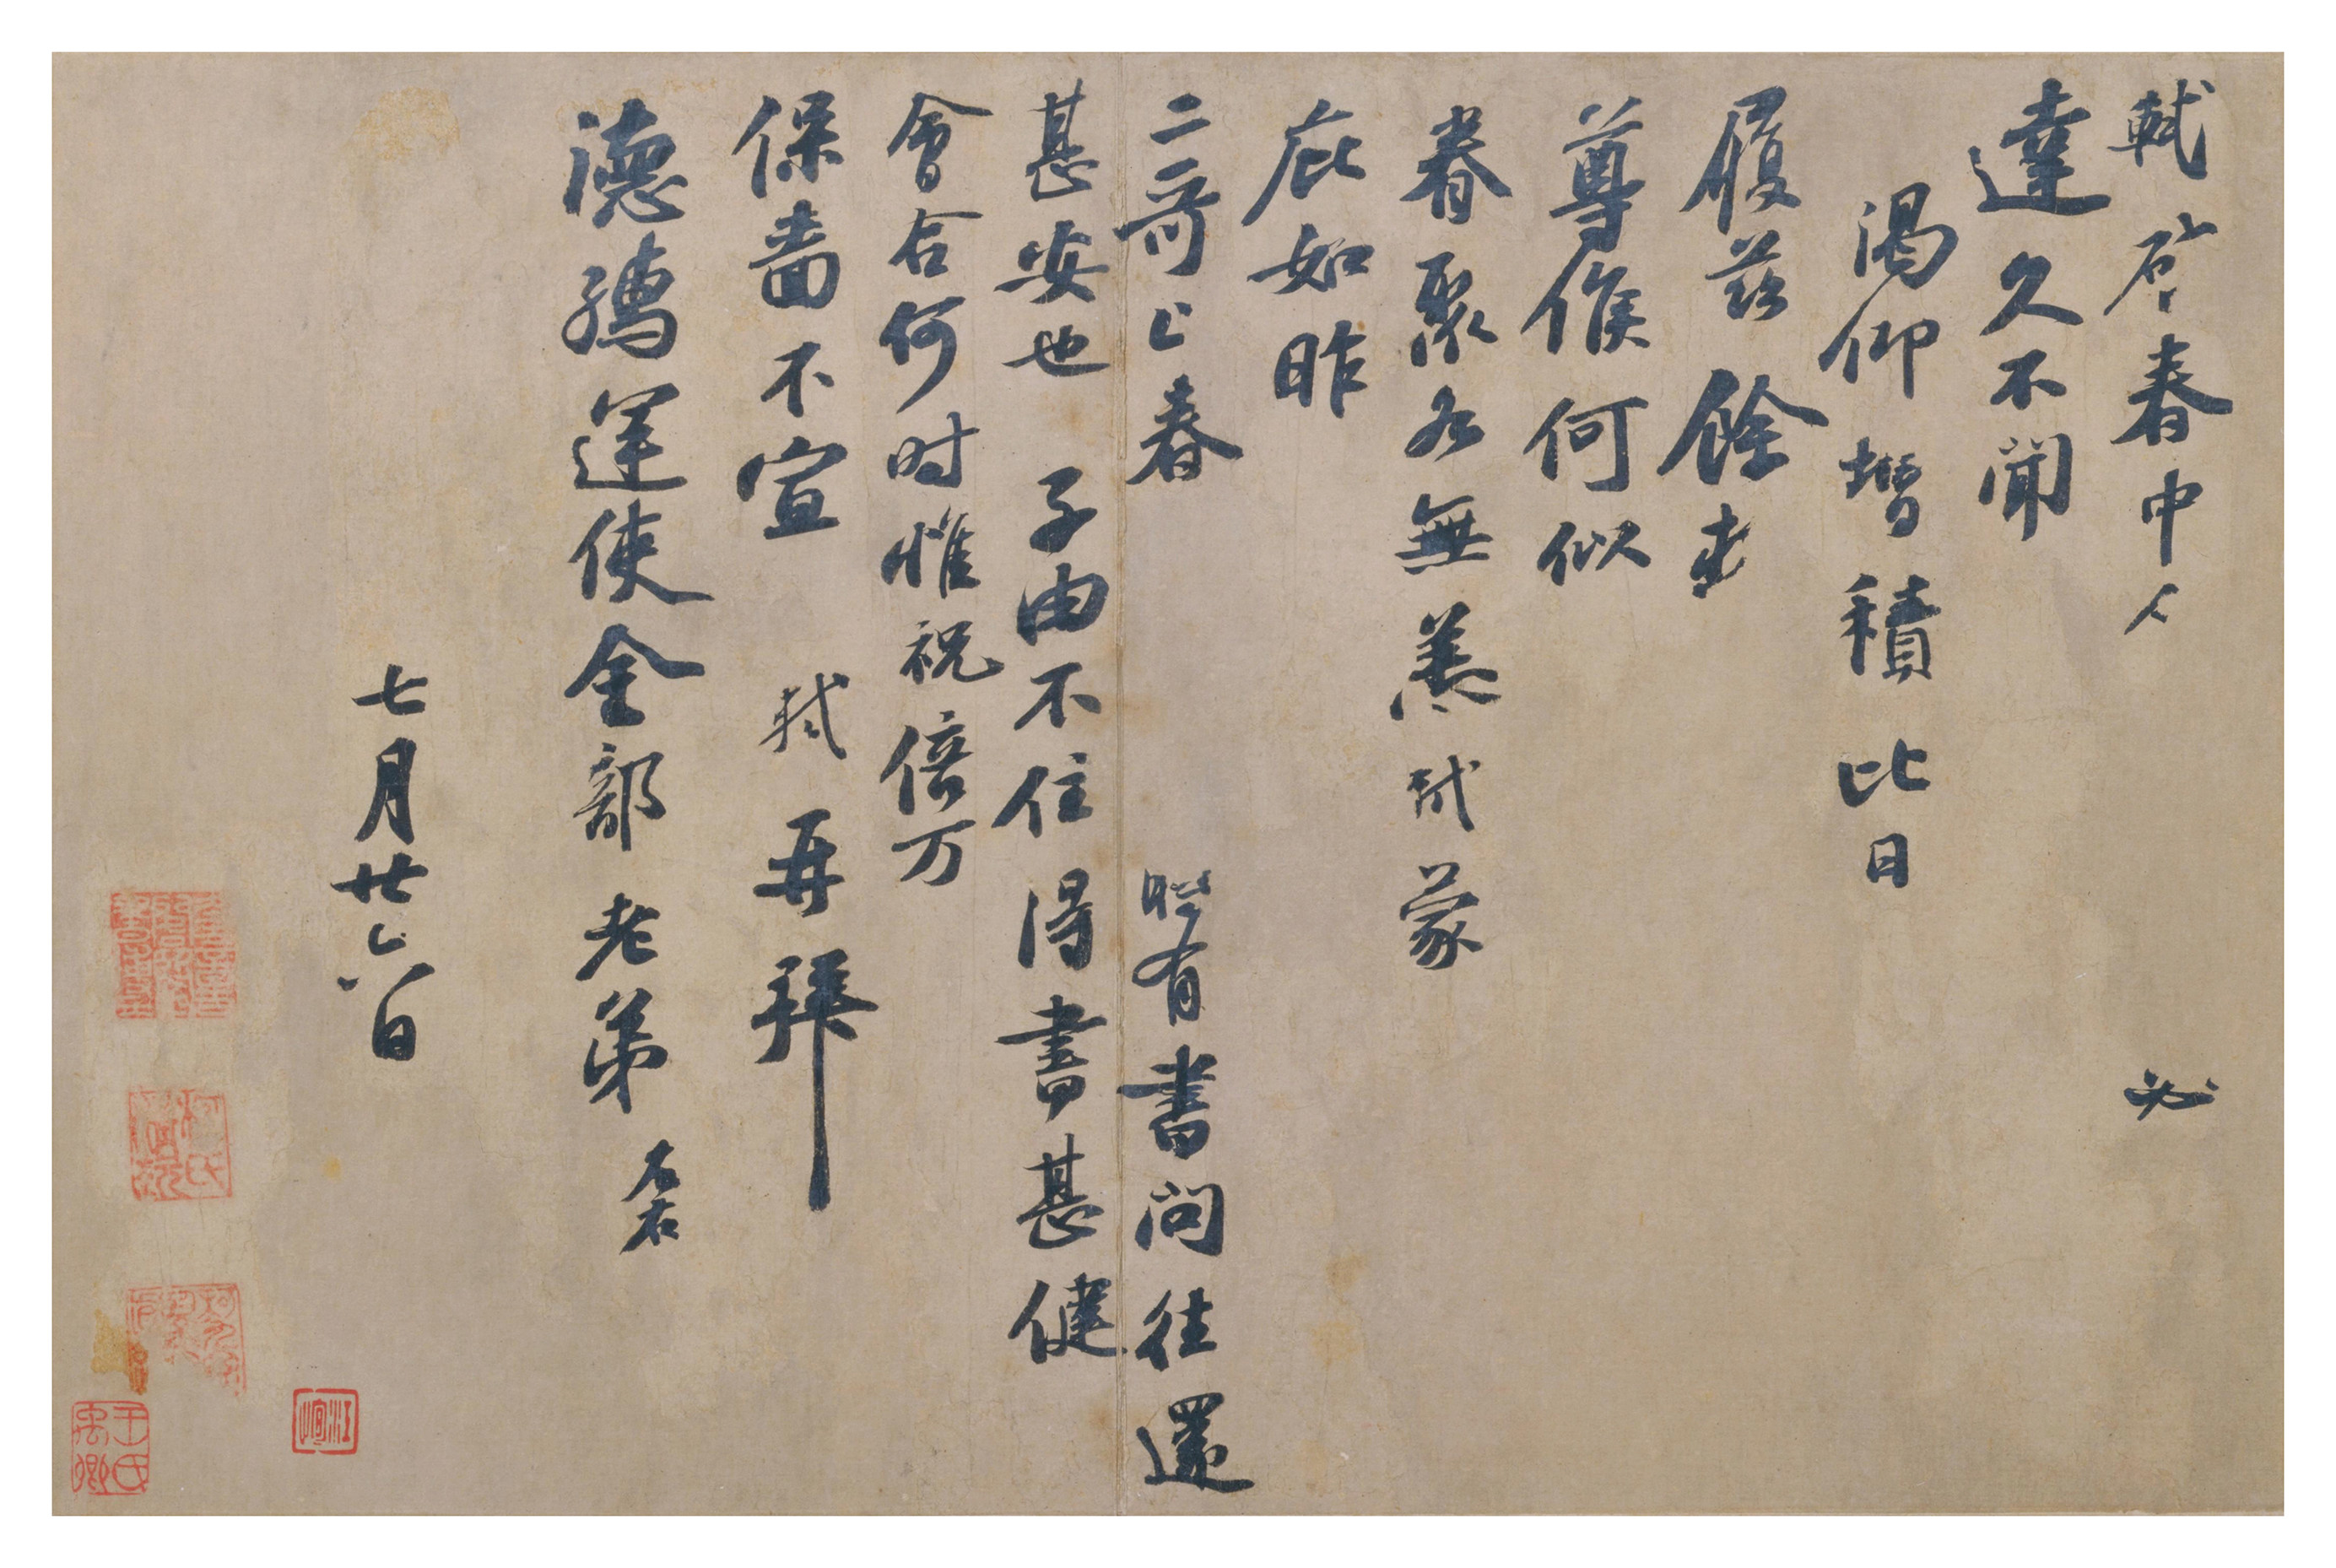 軾啓春中人 必
達久不聞
渴仰增積比日
履茲餘
尊候何似
眷聚各無恙軾蒙
庇如昨
二哥上春 時有書問往還
甚安也 子由不住得書甚健
會合何时惟祝倍万
保嗇不宣 軾再拜
德孺運使金部老弟 左右
七月廿六日
江恂
王氏禹卿